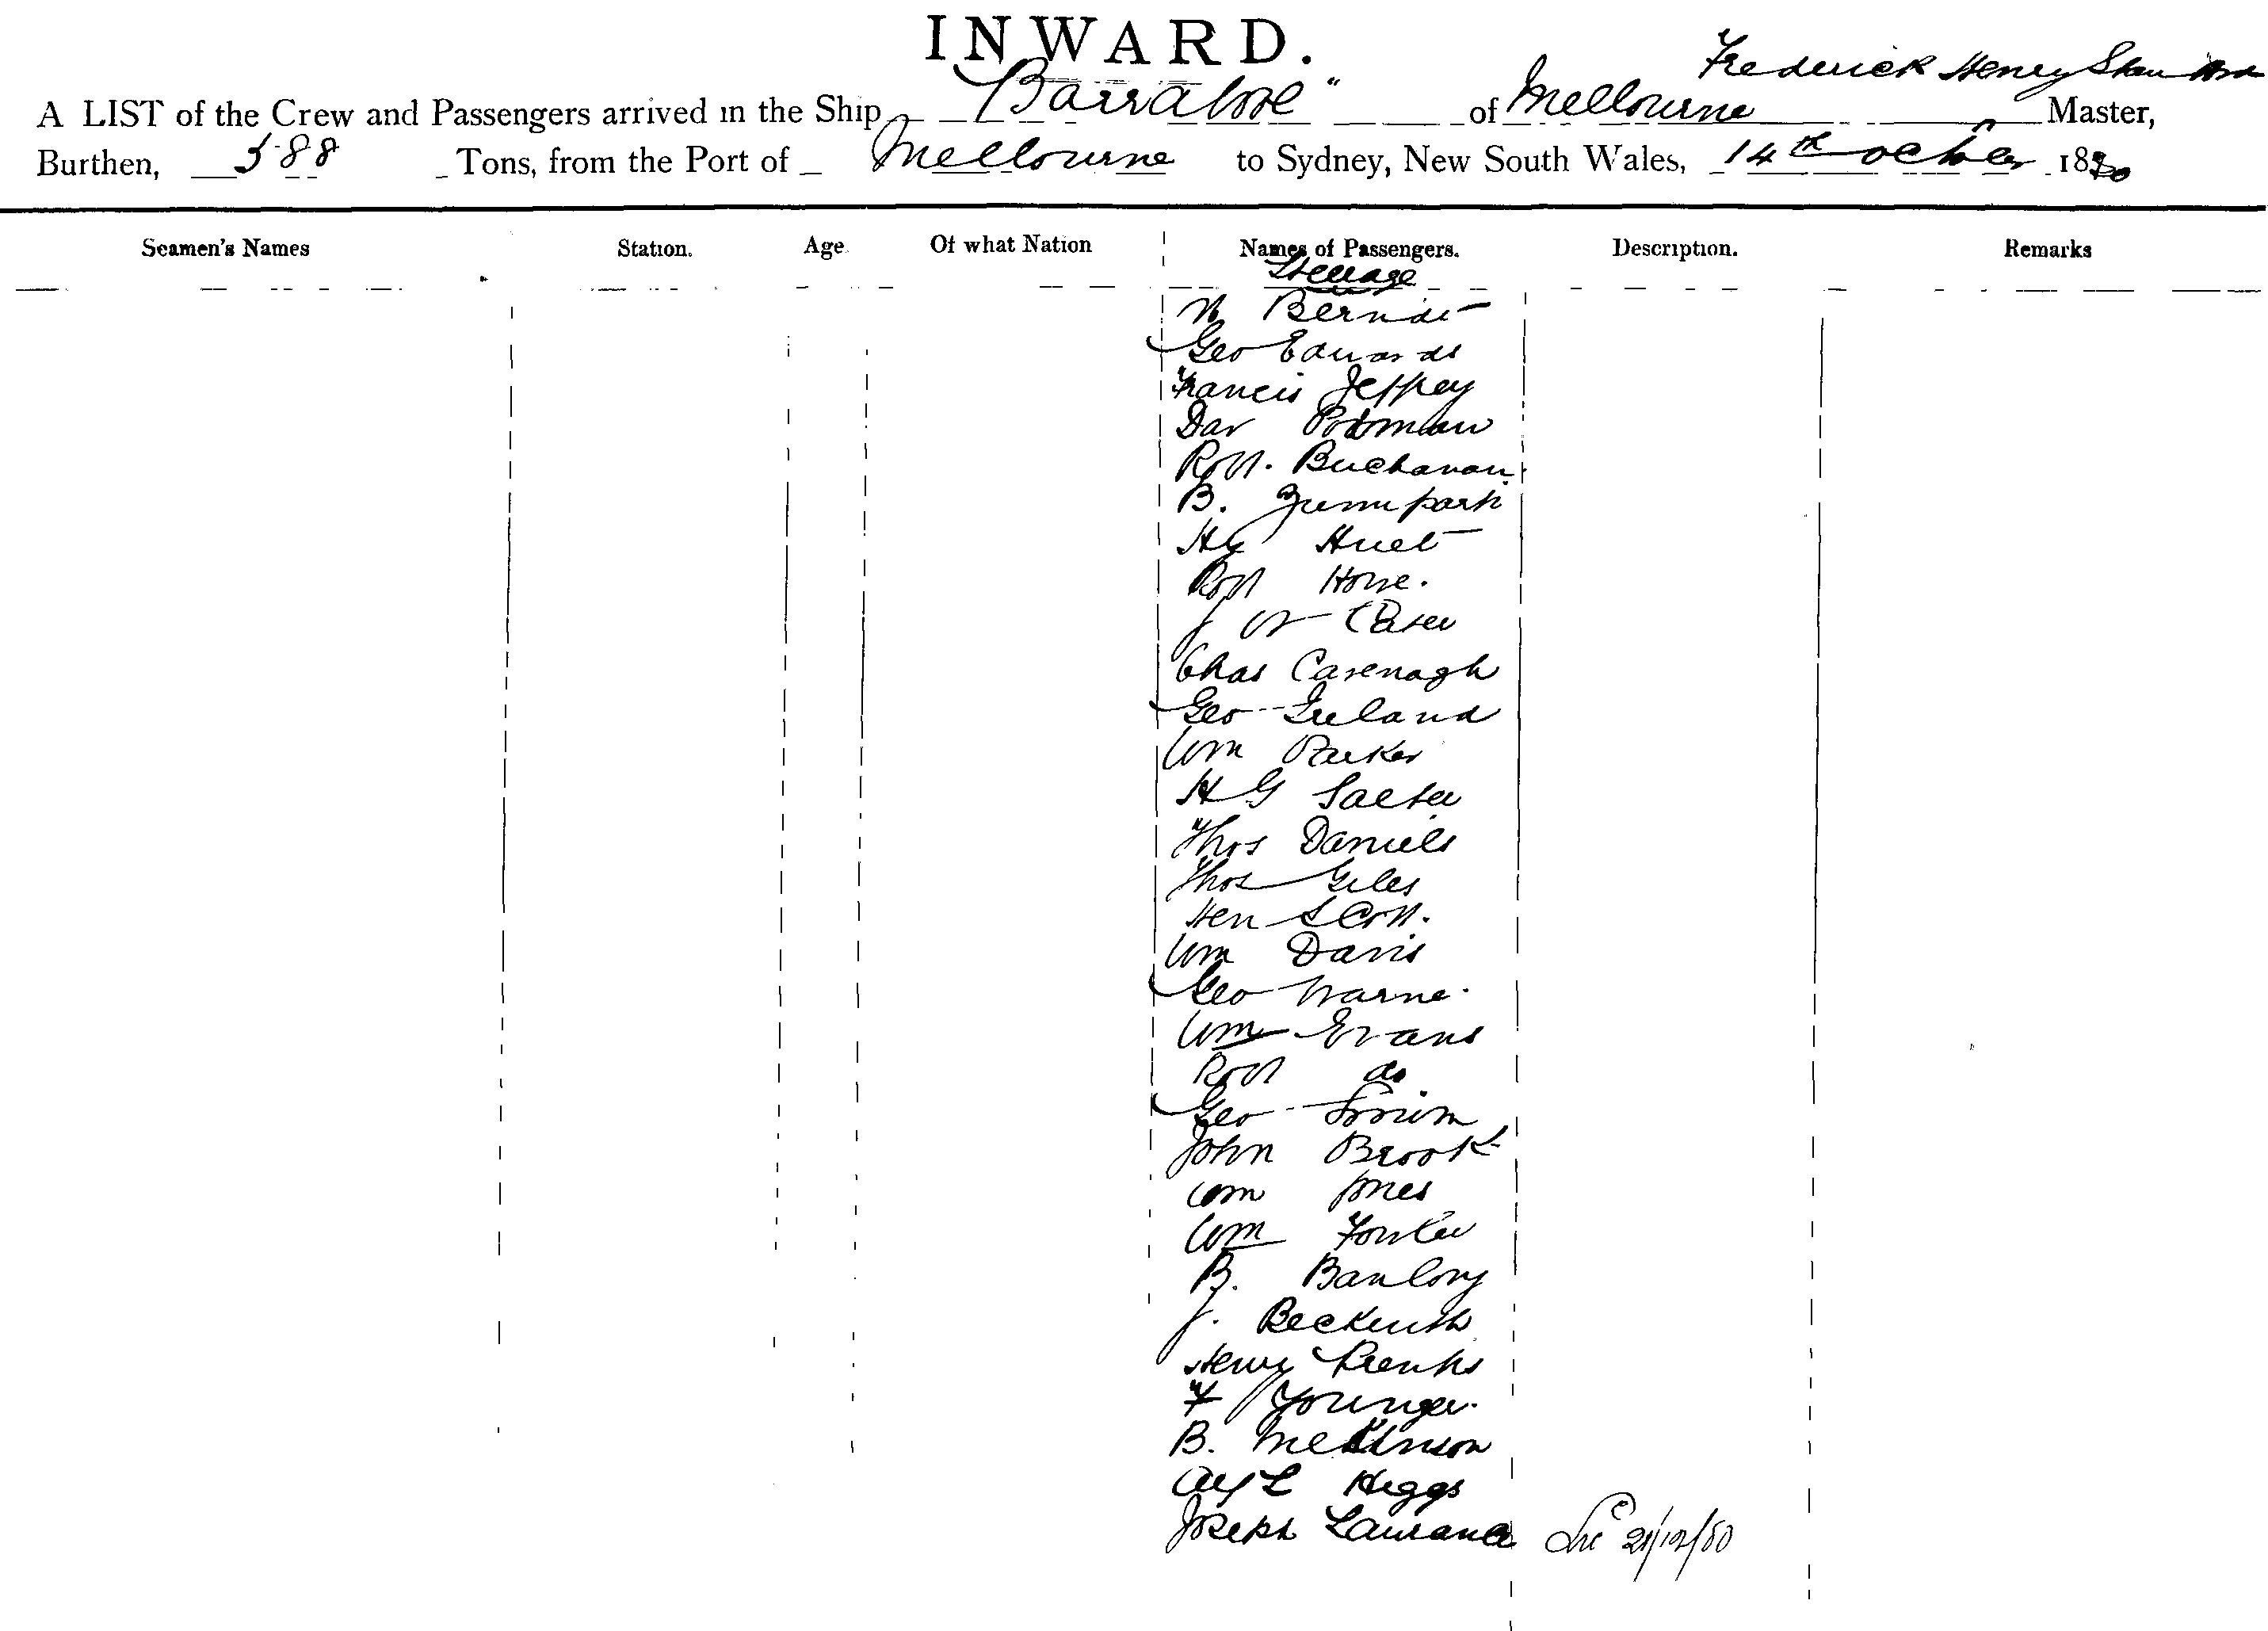 INWARD.
Frederick Henry
A LIST of the Crew and Passengers arrived in the Ship "Barrabool" of Melbourne Master,
Burthen, 588 Tons, from the Port of Melbourne to Sydney, New South Wales, 14th October 1880
Seamen's Names Station. Age. Of what Nation Names of Passengers. Description. Remarks
Steerage
Berndt
Geo Edwards
Francis Jeffrey
Dav
Robt. Buchanan
B. Zumpark
Hy Huet
Robt Howe.
J W
Chas Cavenagh
Geo Ireland
Wm Parker
H G Salter
Thos Daniels
Thos Giles
Hen Scott.
Wm Davis
Geo Warne.
Wm Evans
Robt do
Geo
John Brook
Wm Jones
Wm Fowler
B.
J. Beckwith
Henry
F Younger.
B. McKinson
Alf L Higgs
Joseph Laurance 21/12/80